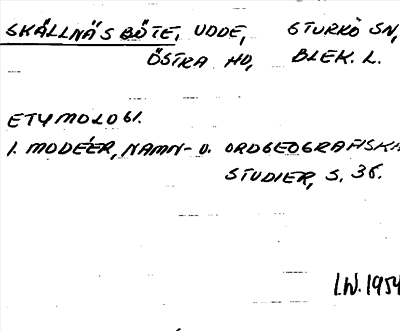 SKÄLLNÄS BÖTE, UDDE, STURKÖ SN,
ÖSTRA HD, BLEK. L.
ETYMOLOGI.
I. MODÉER, NAMN- O. ORDGEOGRAFISKA
STUDIER, S. 36.
I.W. 1954